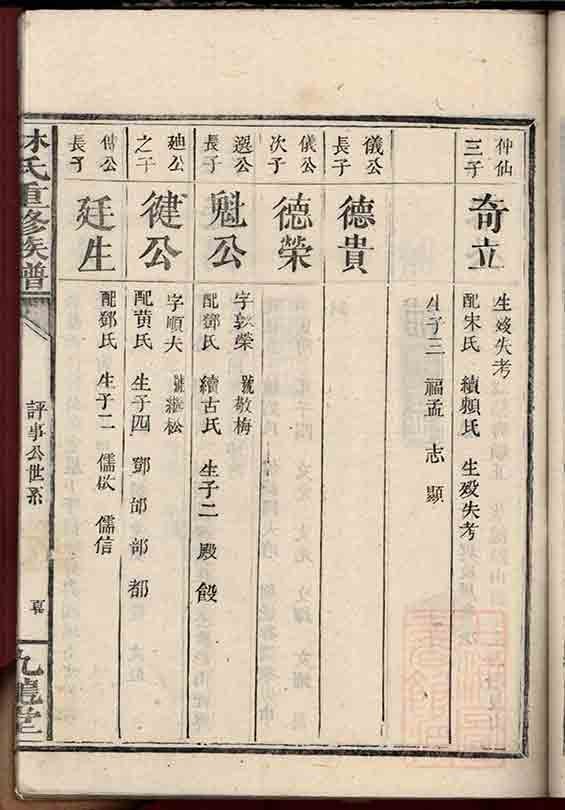 仲仙
三子
奇立
生歿失考
配宋氏 續賴氏 生歿失考
生子三 福孟 志 顯
儀公
長子
德貴
儀公
次子
德榮
選公
長子
魁公
字敦榮 號敬梅
配鄧氏 續古氏 生子二 殿 毅
廸公
之子
健公
字順夫 號繼松
配黃氏 生子四 鄧 邰 部 都
長子
廷生
配鄧氏 生子二 儒欽 儒信
林氏重修族譜
評事公世系
九龍堂